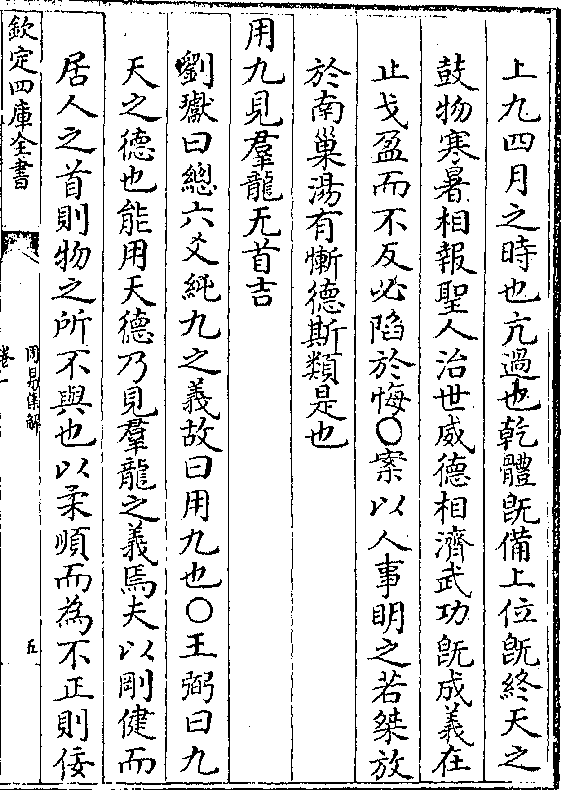 上九四月之時也亢過也乾體旣備上位旣終天之
鼓物寒暑相報聖人治世威德相濟武功旣成義在
止戈盈而不反必陷於悔○案以人事明之若桀放
於南巢湯有慚德斯類是也
用九見羣龍无首吉
劉瓛曰總六爻純九之義故曰用九也○王弼曰九
天之德也能用天德乃見羣龍之義焉夫以剛健而
居人之首則物之所不與也以柔順而為不正則佞
欽定四庫全書
周易集解
卷一
五